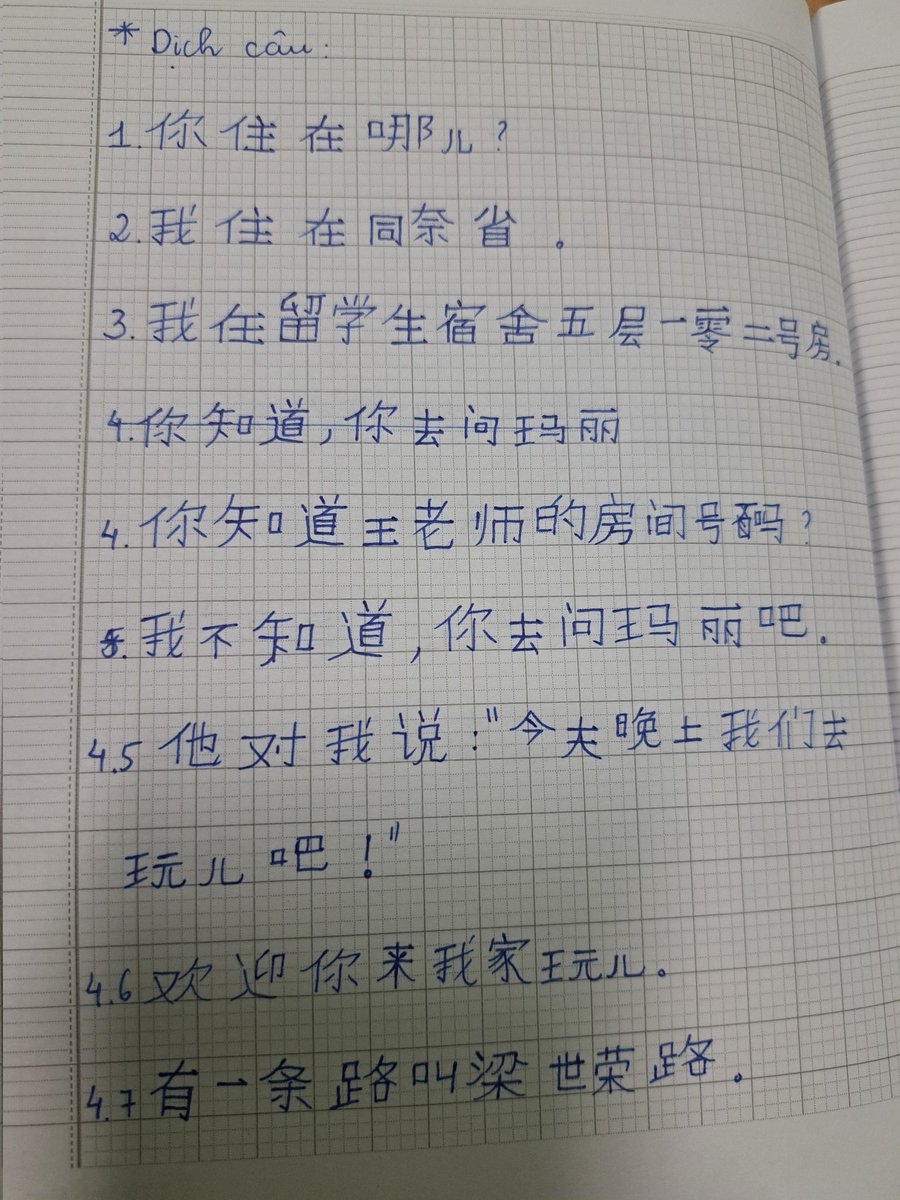 * Dịch câu:
1. 你住在哪儿?
2. 我住在同奈省。
3. 我住留学生宿舍五层一零二号房.
4. 你知道, 你去问玛丽
4. 你知道王老师的房间号码?
5. 我不知道, 你去问玛丽吧.
4.5 他对我说:"今天晚上我们去
玩儿吧!"
4.6 欢迎你来我家玩儿。
4.7 有一条路叫梁世荣路。